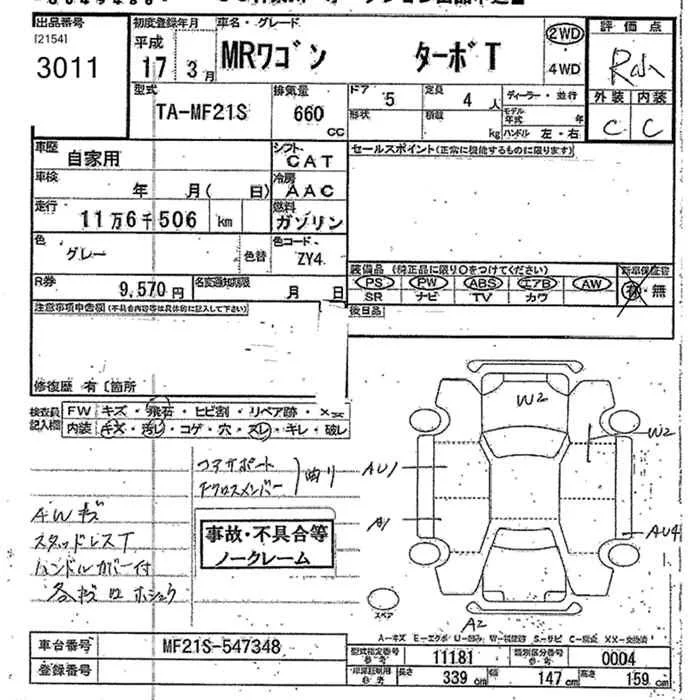 出品番号 初度登録年月 車名・グレード 評価点
[2154] 平成
3011 17 3月 MRワゴン ターボT 2WD
4WD
型式 排気量 ドア 5 定員 4人 ディーラー・並行 外装 内装
TA-MF21S 660 CC 形状 積載 kg モデル年式 年 C C
ハンドル 左・右
車歴 自家用 シフト CAT セールスポイント(正常に機能するものに限ります)
車検 年 月( 日) 冷房 AAC
走行 11万6千506 km 燃料 ガソリン
色 グレー 色替 色コード ZY4
装備品(純正品に限り○をつけてください) 新車保証書
R券 9,570円 名変通知期限 月 日 PS PW ABS エアB AW 有・無
SR ナビ TV カワ
注意事項申告欄(不具合内容等は具体的に記入して下さい) 後日品
修復歴 有〔箇所
検査員記入欄 FW キズ・飛石・ヒビ割・リペア跡・
内装 キズ・汚レ・コゲ・穴・スレ・キレ・破レ
W2
W2
コアサポート
クロスメンバー
AU1
A1
AU4
AWキズ
スタッドレスT
ハンドルカバー付
事故・不具合等
ノークレーム
スペア
A2
A-キズ E-エクボ U-凹み S-サビ
車台番号 MF21S-547348
型式指定番号 参考 11181 類別区分番号 参考 0004
登録番号
参考 長さ 339 cm 幅 147 cm 高さ 159 cm